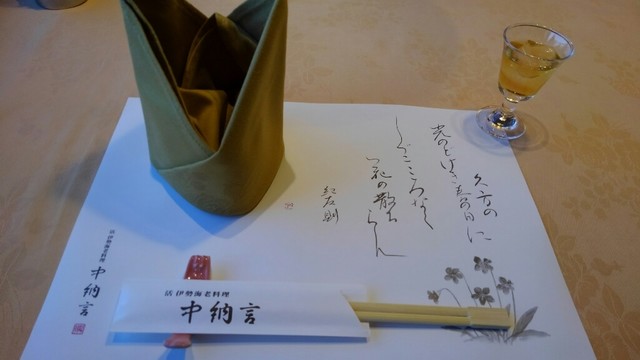 久方の
光のどけき春の日に
しづこころなく
花の散るらん
紀友則
活伊勢海老料理
中納言
活伊勢海老料理
中納言